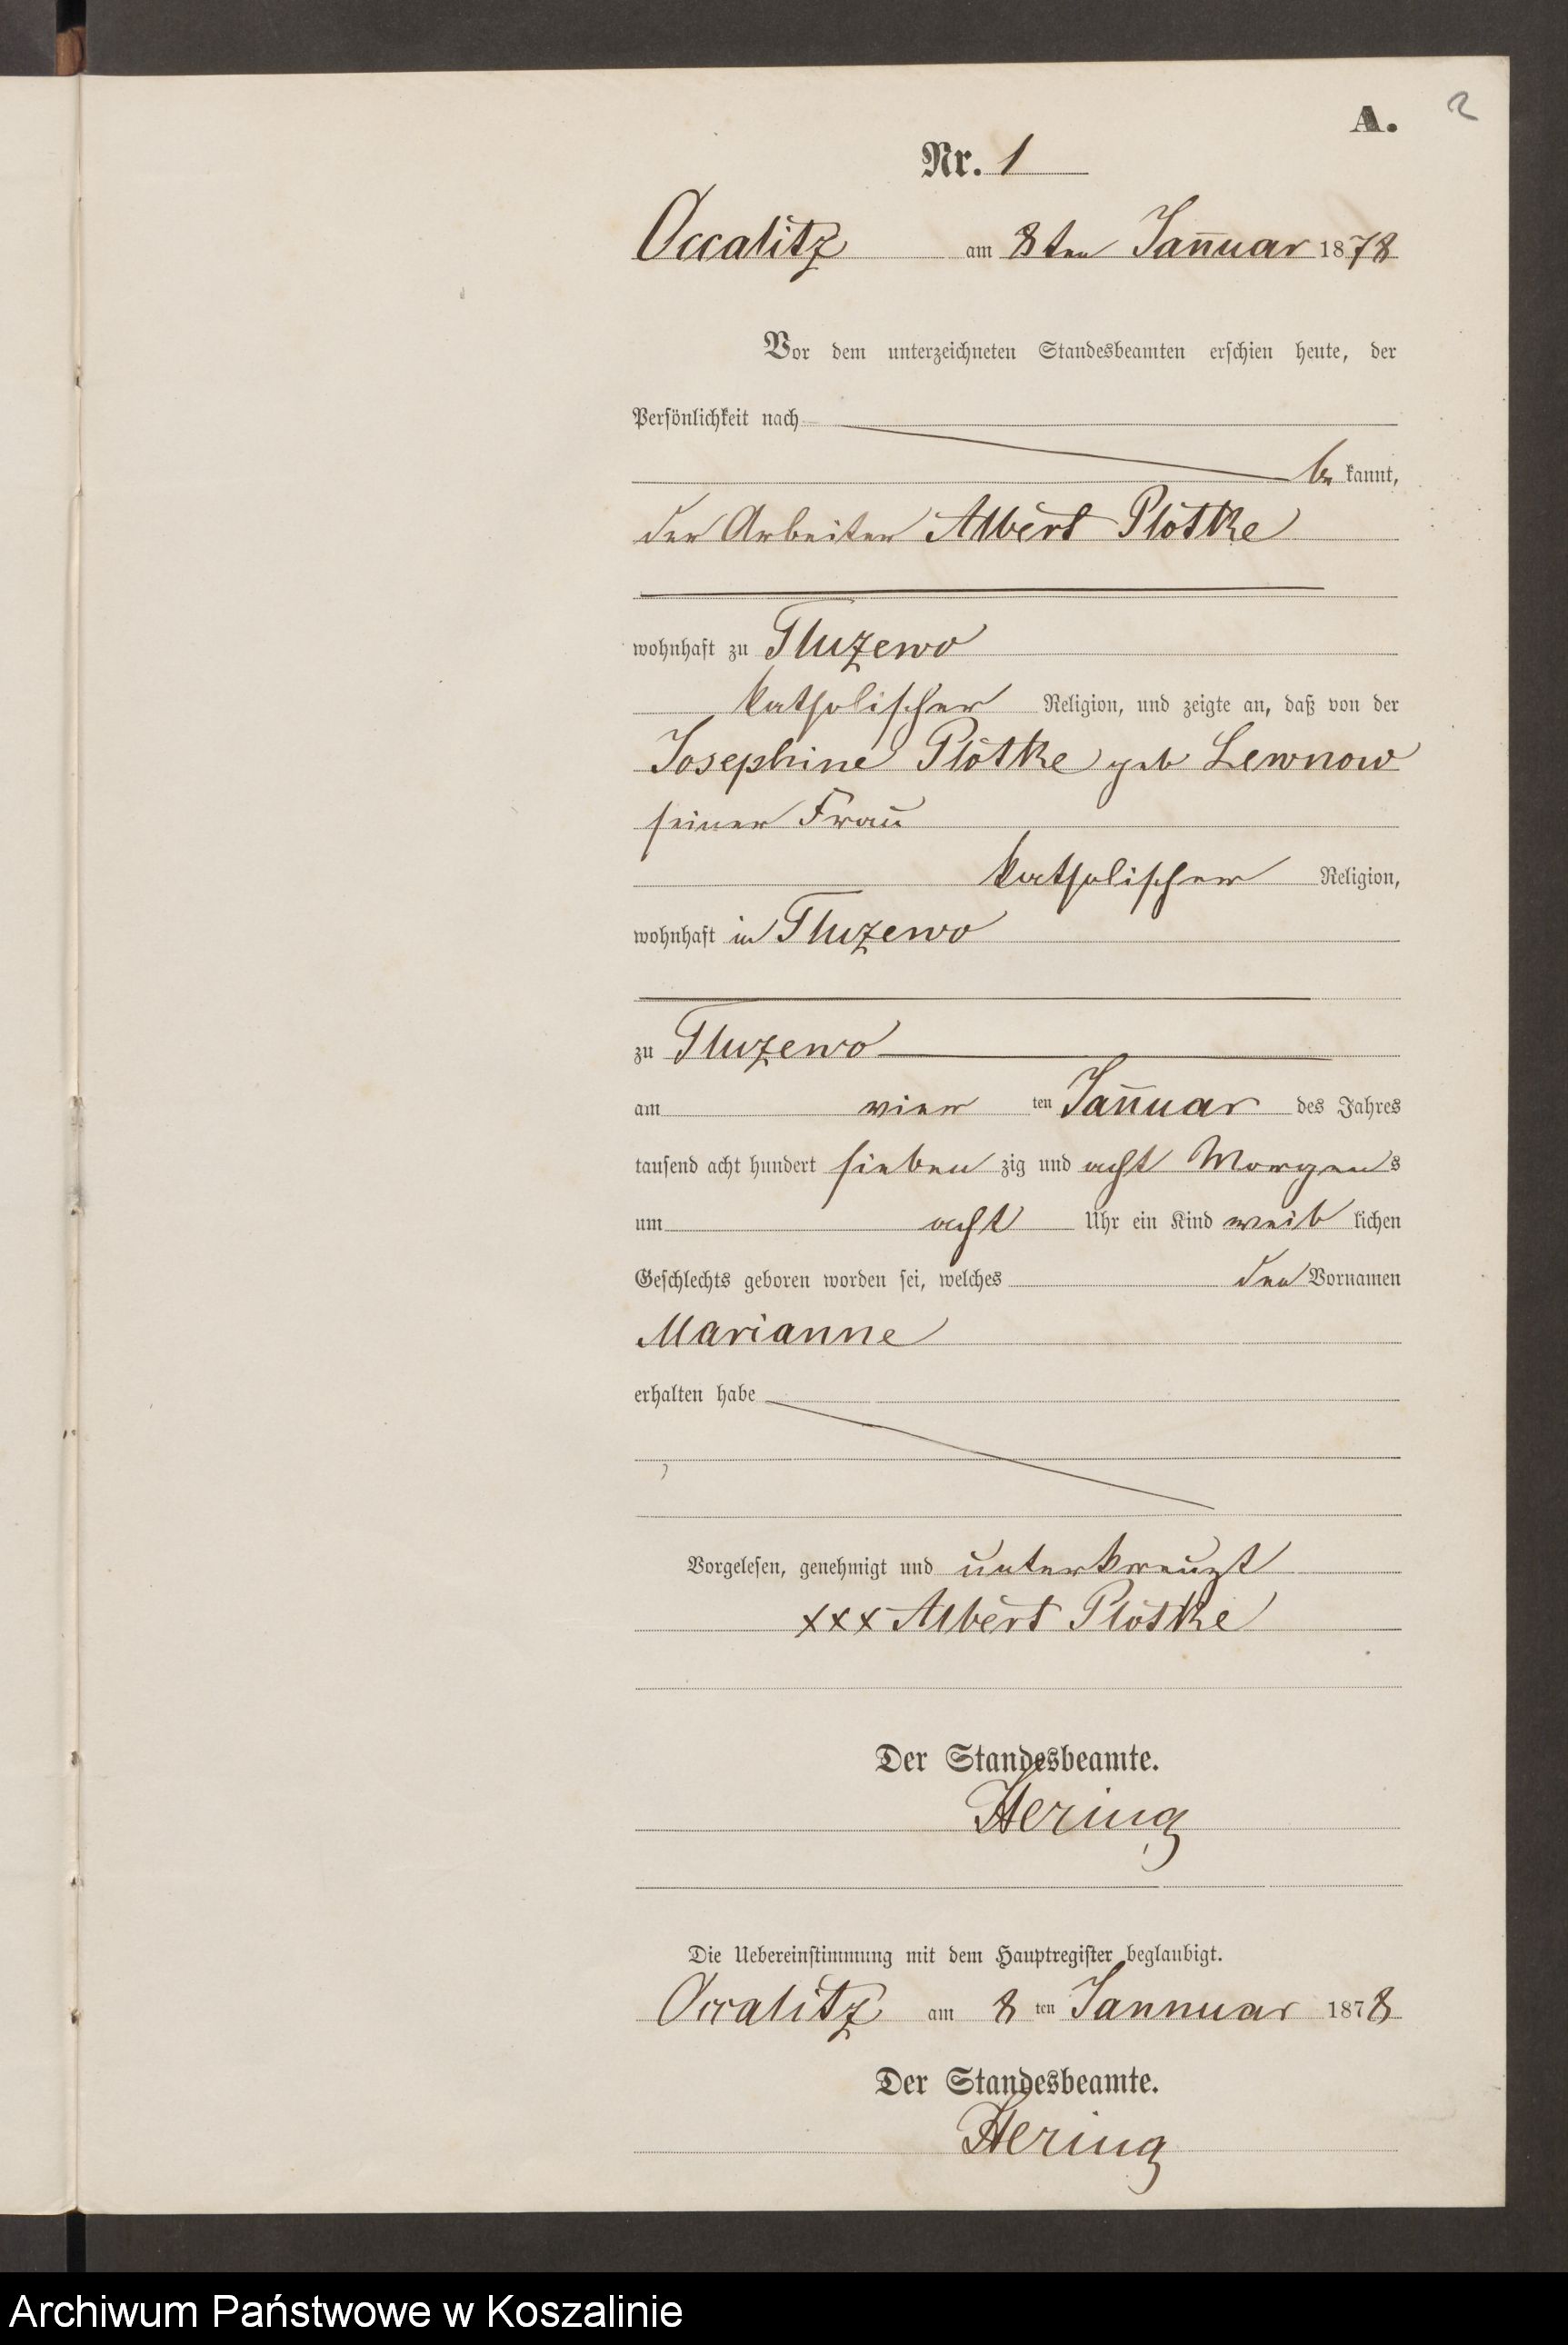 A.
2
Nr. 1
Occalitz am 8ten Jan̄uar 1878
Vor dem unterzeichneten Standesbeamten erschien heute, der
Persönlichkeit nach
be kannt,
der Arbeiter Albert Plötke
wohnhaft zu Tluzewo
katholischer Religion, und zeigte an, daß von der
Josephine Plötke geb Lewnow
seiner Frau
katholischer Religion,
wohnhaft in Tluzewo
zu Tluzewo
am vier ten Jan̄uar des Jahres
tausend acht hundert sieben zig und acht Morgens
um acht Uhr ein Kind weib lichen
Geschlechts geboren worden sei, welches den Vornamen
Marianne
erhalten habe
Vorgelesen, genehmigt und unterkreuzt
xxx Albert Plötke
Der Standesbeamte.
Hering
Die Uebereinstimmung mit dem Hauptregister beglaubigt.
Occalitz am 8 ten Jannuar 1878
Der Standesbeamte.
Hering
Archiwum Państwowe w Koszalinie